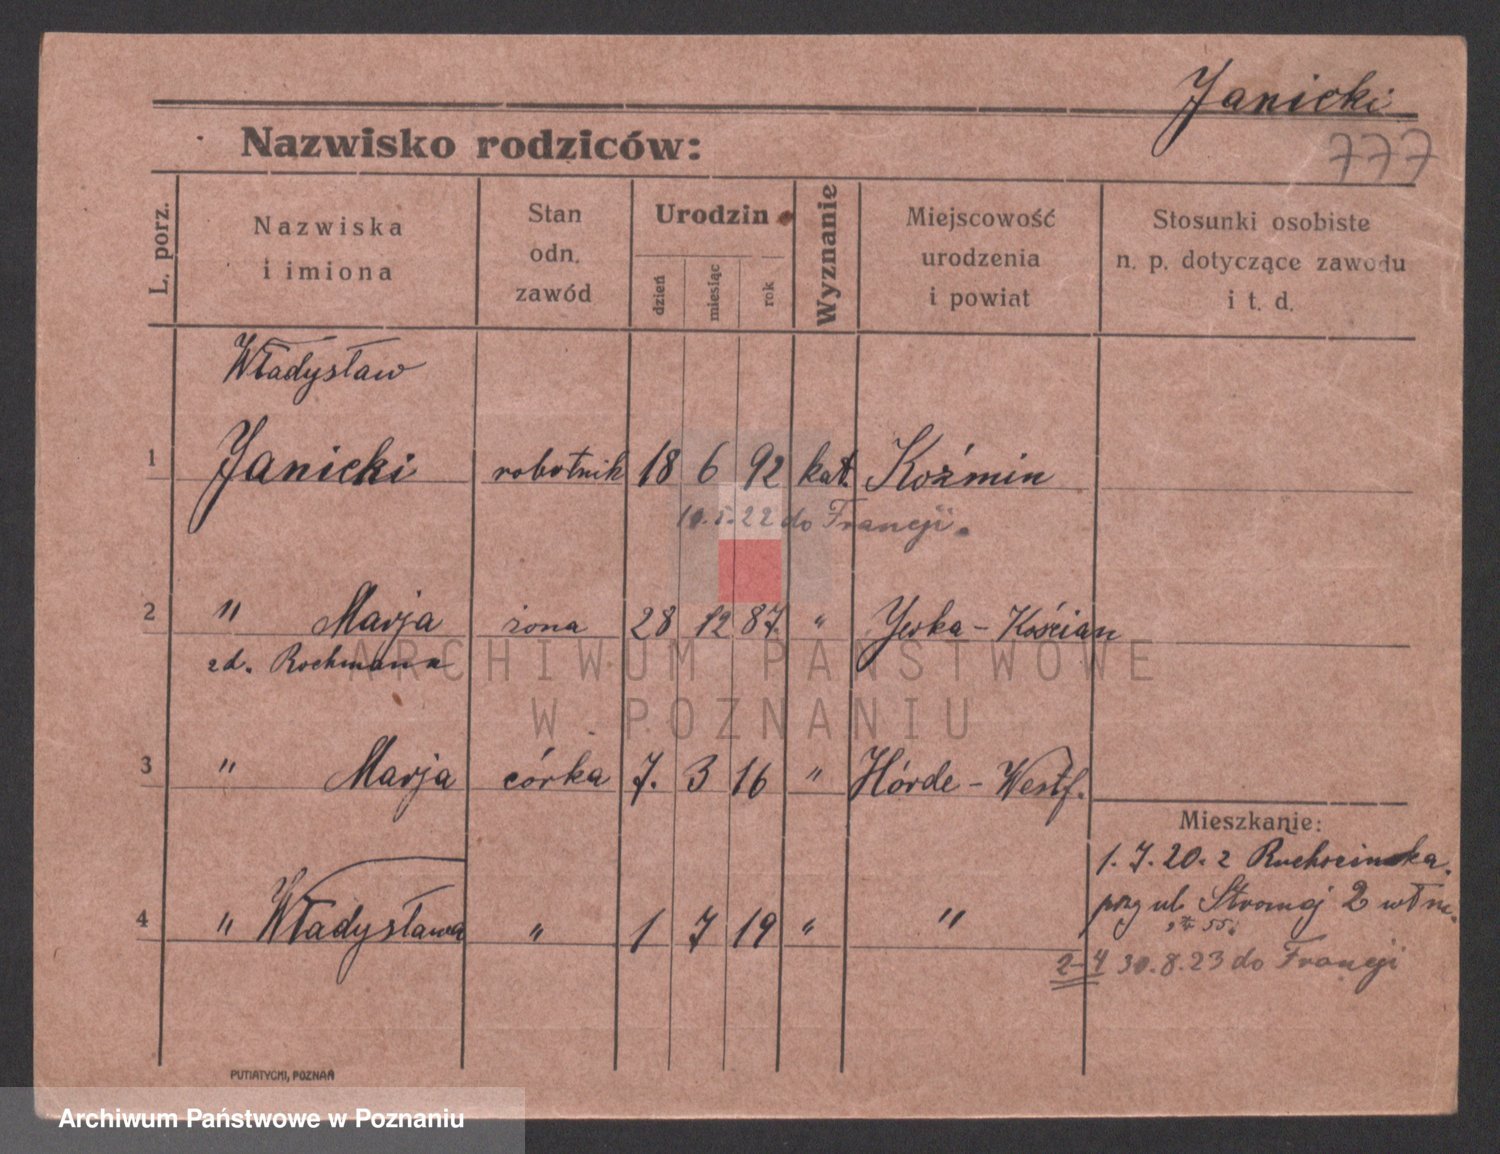 Janicki
777
Nazwisko rodziców:
L. porz.
Nazwiska
i imiona
Stan
odn.
zawód
Urodzin
dzień
miesiąc
rok
Wyznanie
Miejscowość
urodzenia
i powiat
Stosunki osobiste
n. p. dotyczące zawodu
i t. d.
Władysław
1 Janicki robotnik 18 6 92 kat. Koźmin
10.5.22 do Francji.
2 " Marja żona 28 12 87 " Jerka - Kościan
zd. Rochmann
ARCHIWUM PAŃSTWOWE
W POZNANIU
3 " Marja córka 7. 3 16 " Hörde - Westf.
Mieszkanie:
1.7.20. z Ruchocinka.
4 " Władysława " 1 7 19 " "
przy ul Stromej 2
2-4 30.8.23 do Francji
PUTIATYCKI, POZNAŃ
Archiwum Państwowe w Poznaniu